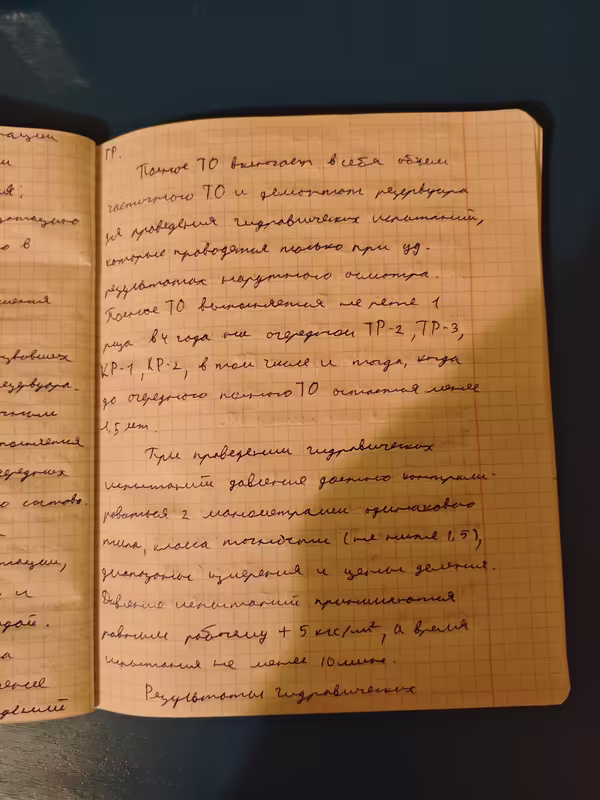 тации
и
я;
о в
ления
езервуара.
полняется
чередных
о состава.
тации,
и
дой.
а
дений
ТР.
Полное ТО включает в себя объем
частичного ТО и демонтаж резервуара
для проведения гидравлических испытаний,
которые проводятся только при уд.
результатах наружного осмотра.
Полное ТО выполняется не реже 1
раза в 4 года на очередном ТР-2, ТР-3,
КР-1, КР-2, в том числе и тогда, когда
до очередного полного ТО остается менее
1,5 лет.
При проведении гидравических
испытаний давление должно контроли-
роваться 2 манометрами одинакового
типа, класса точности (не ниже 1,5),
диапазоны измерения и цены деления.
Давление испытаний принимаются
равным рабочему + 5 кгс/м², а время
испытания не менее 10 мин.
Результаты гидравических